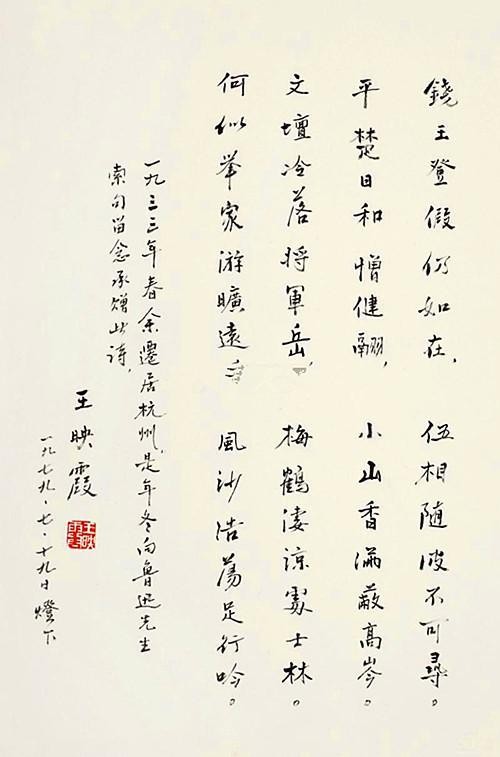 錢王登假仍如在，伍相随波不可尋。
平楚日和憎健翮，小山香滿蔽高岑。
文壇冷落將軍岳，梅鶴凄涼處士林。
何似举家游曠遠，風沙浩蕩足行吟。
一九三三年春余遷居杭州，是年冬向魯迅先生
索句留念承贈此诗，
王映霞
一九七九·七·十九日燈下